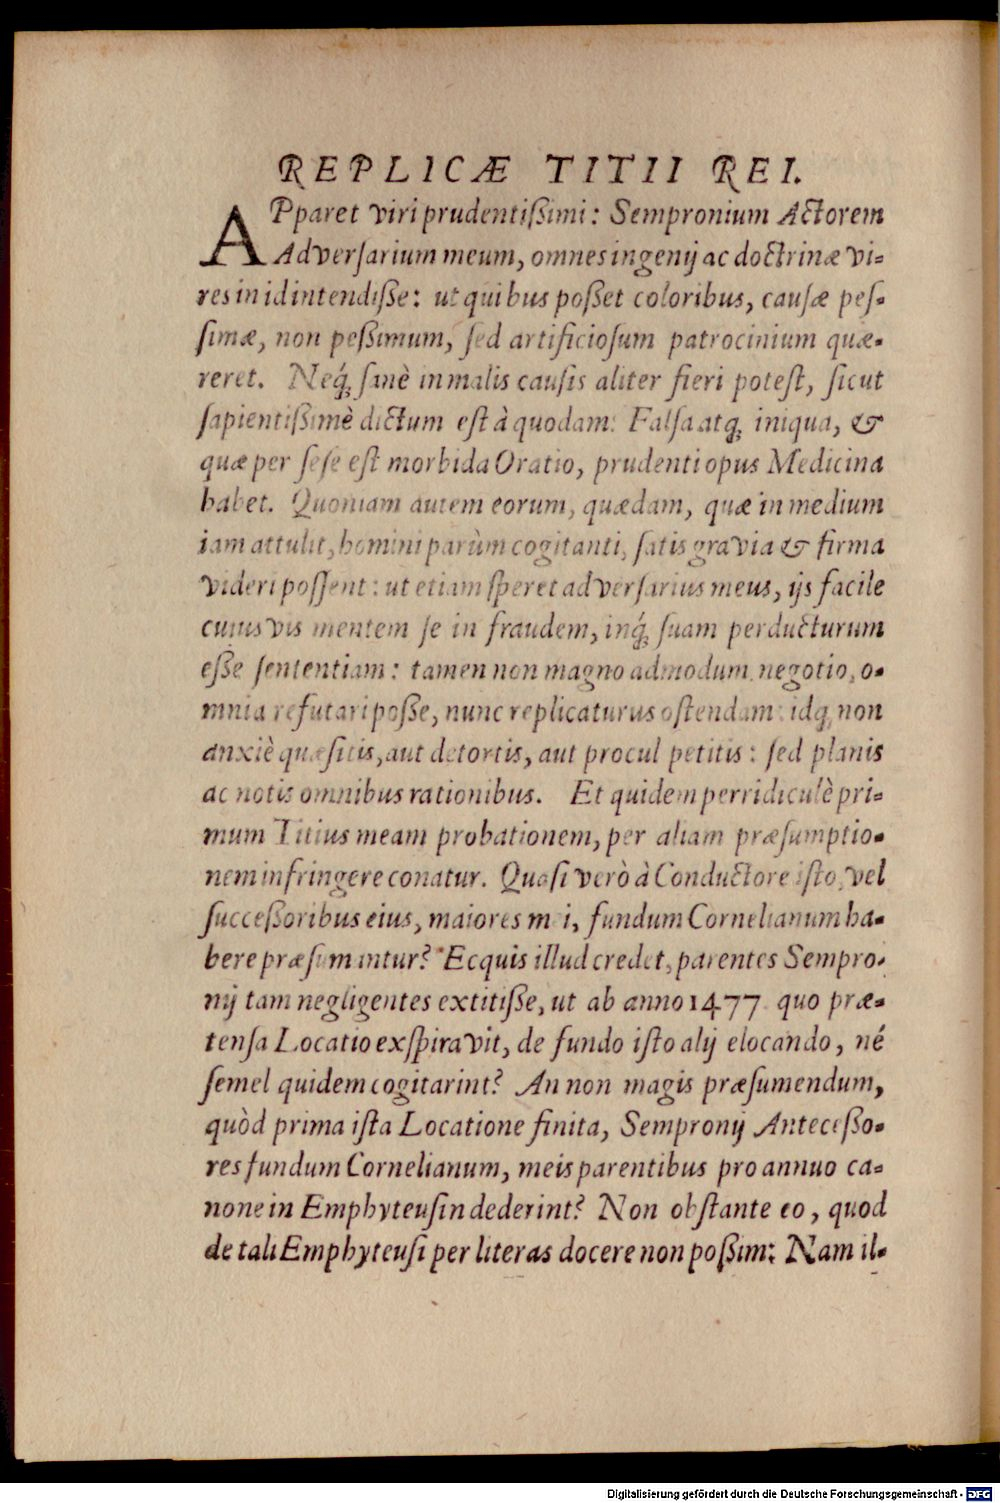 REPLICÆ TITII REI.
APparet viri prudentißimi: Sempronium Actorem
Adversarium meum, omnes ingenij ac doctrinæ vi-
res in id intendiße: ut quibus poßet coloribus, causæ pes-
simæ, non peßimum, sed artificiosum patrocinium quæ-
reret. Neq́; sanè in malis causis aliter fieri potest, sicut
sapientißimè dictum est à quodam: Falsa atq; iniqua, &
quæ per sese est morbida Oratio, prudenti opus Medicina
habet. Quoniam autem eorum, quædam, quæ in medium
iam attulit, homini parùm cogitanti, satis gravia & firma
videri possent: ut etiam speret adversarius meus, ijs facile
cuiusvis mentem se in fraudem, inq́; suam perducturum
eße sententiam: tamen non magno admodum negotio, o-
mnia refutari poße, nunc replicaturus ostendam: idq; non
anxiè quæsitis, aut detortis, aut procul petitis: sed planis
ac notis omnibus rationibus. Et quidem perridiculè pri-
mum Titius meam probationem, per aliam præsumptio-
nem infringere conatur. Quasi verò à Conductore isto, vel
succeßoribus eius, maiores mei, fundum Cornelianum ha-
bere præsumantur? Ecquis illud credet, parentes Sempro-
nij tam negligentes extitiße, ut ab anno 1477 quo præ-
tensa Locatio exspiravit, de fundo isto alij elocando, né
semel quidem cogitarint? An non magis præsumendum,
quòd prima ista Locatione finita, Sempronij Anteceßo-
res fundum Cornelianum, meis parentibus pro annuo ca-
none in Emphyteusin dederint? Non obstante eo, quod
de tali Emphyteusi per literas docere non poßim: Nam il-
Digitalisierung gefördert durch die Deutsche Forschungsgemeinschaft - DFG